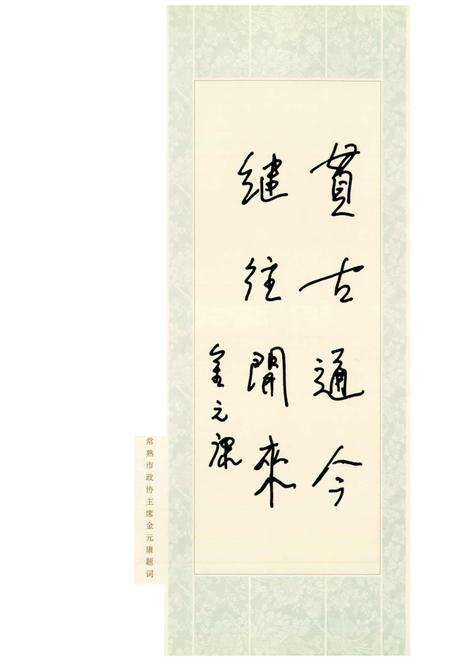 貫古通今
继往開來
金元康
常熟市政协主席金元康题词